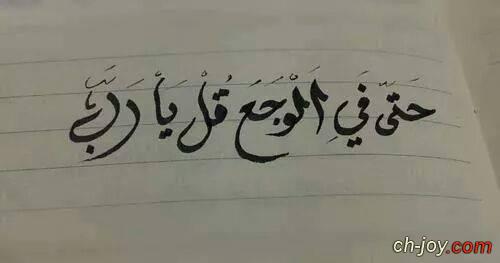 حَتىّ فَي اَلوْجَع قُلْ يَاْ رَبَّ
ch-joy.com